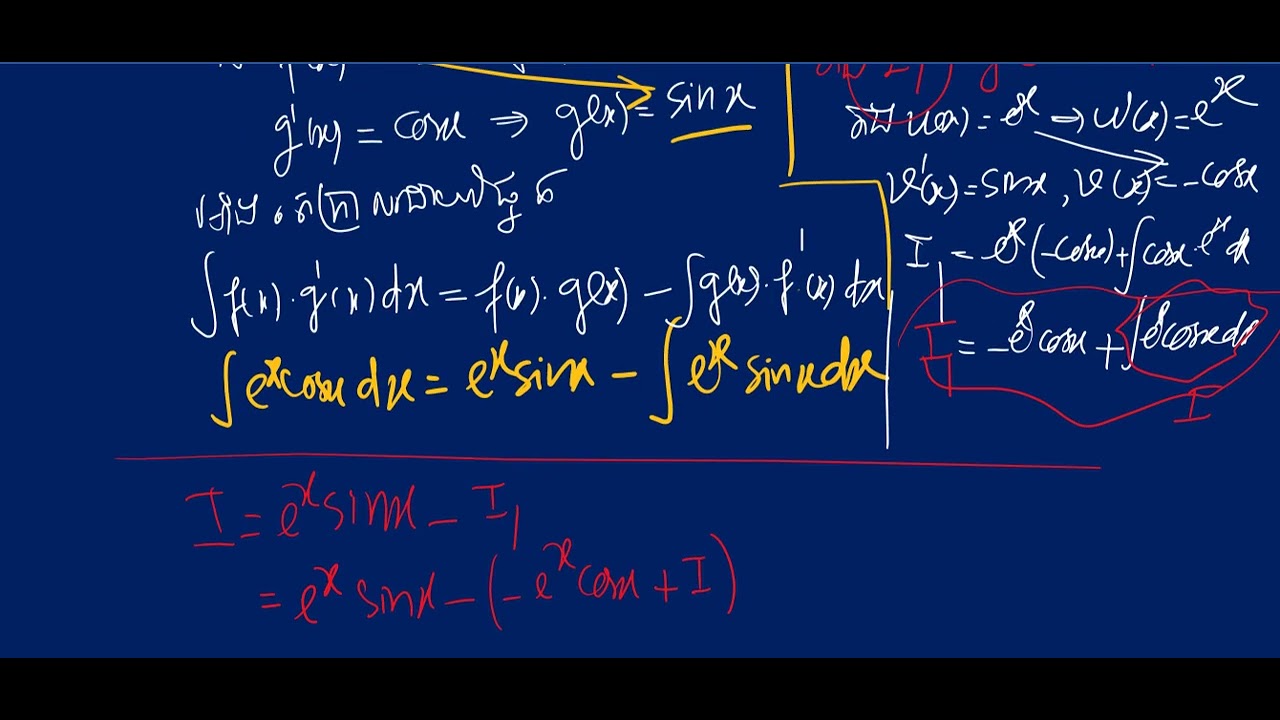 g'(x) = cosx ⇒ g(x) = sin x
∫f(x)·g'(x)dx = f(x)·g(x) − ∫g(x)·f'(x)dx
∫eˣcosx dx = eˣsinx − ∫eˣ sinx dx
u(x) = eˣ ⇒ u'(x) = eˣ
v'(x) = sinx, v(x) = −cosx
I₁ = eˣ(−cosx) + ∫cosx·eˣ dx
I₁ = −eˣ cosx + ∫eˣcosx dx
I
I = eˣ sinx − I₁
= eˣ sinx − (−eˣ cosx + I)